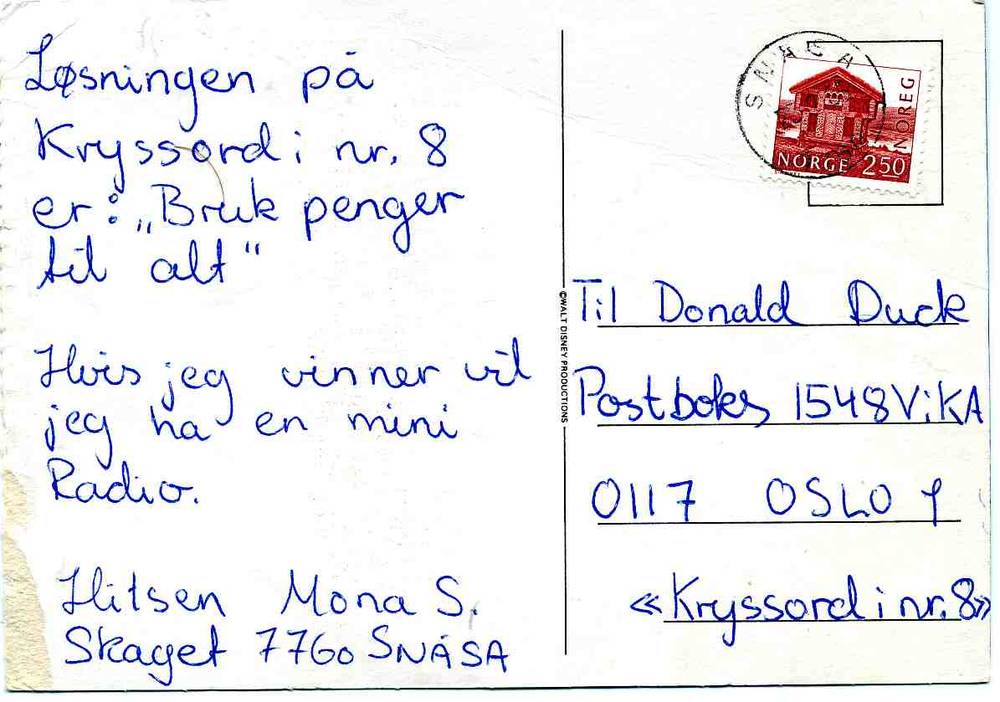 Løsningen på
Kryssord i nr. 8
er: „Bruk penger
til alt“
Hvis jeg vinner vil
jeg ha en mini
Radio.
Hilsen Mona S.
Skaget 7760 SNÅSA
©WALT DISNEY PRODUCTIONS
SNÅSA
NORGE 250
NOREG
Til Donald Duck
Postboks 1548 ViKA
0117 OSLO 1
«Kryssord i nr. 8»